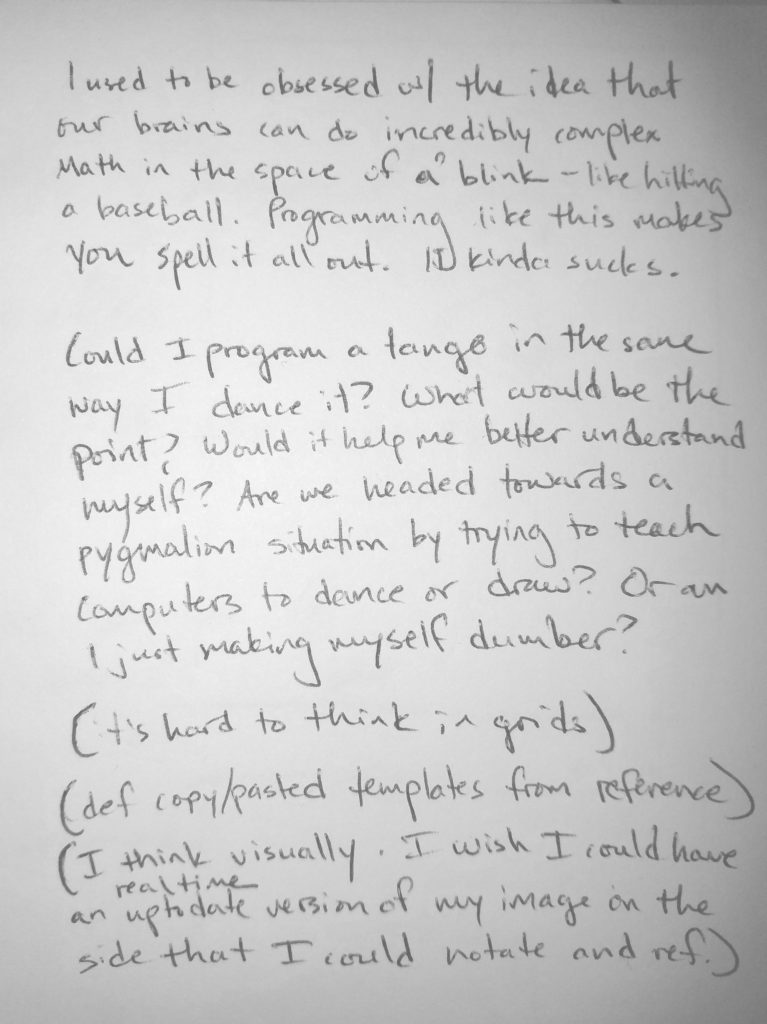 I used to be obsessed w/ the idea that
our brains can do incredibly complex
Math in the space of a blink - like hitting
a baseball. Programming like this makes
you spell it all out. It kinda sucks.
Could I program a tango in the same
way I dance it? What would be the
point? Would it help me better understand
myself? Are we headed towards a
pygmalion situation by trying to teach
computers to dance or draw? Or am
I just making myself dumber?
(it's hard to think in grids)
(def copy/pasted templates from reference)
(I think visually. I wish I could have
realtime
an uptodate version of my image on the
side that I could notate and ref.)